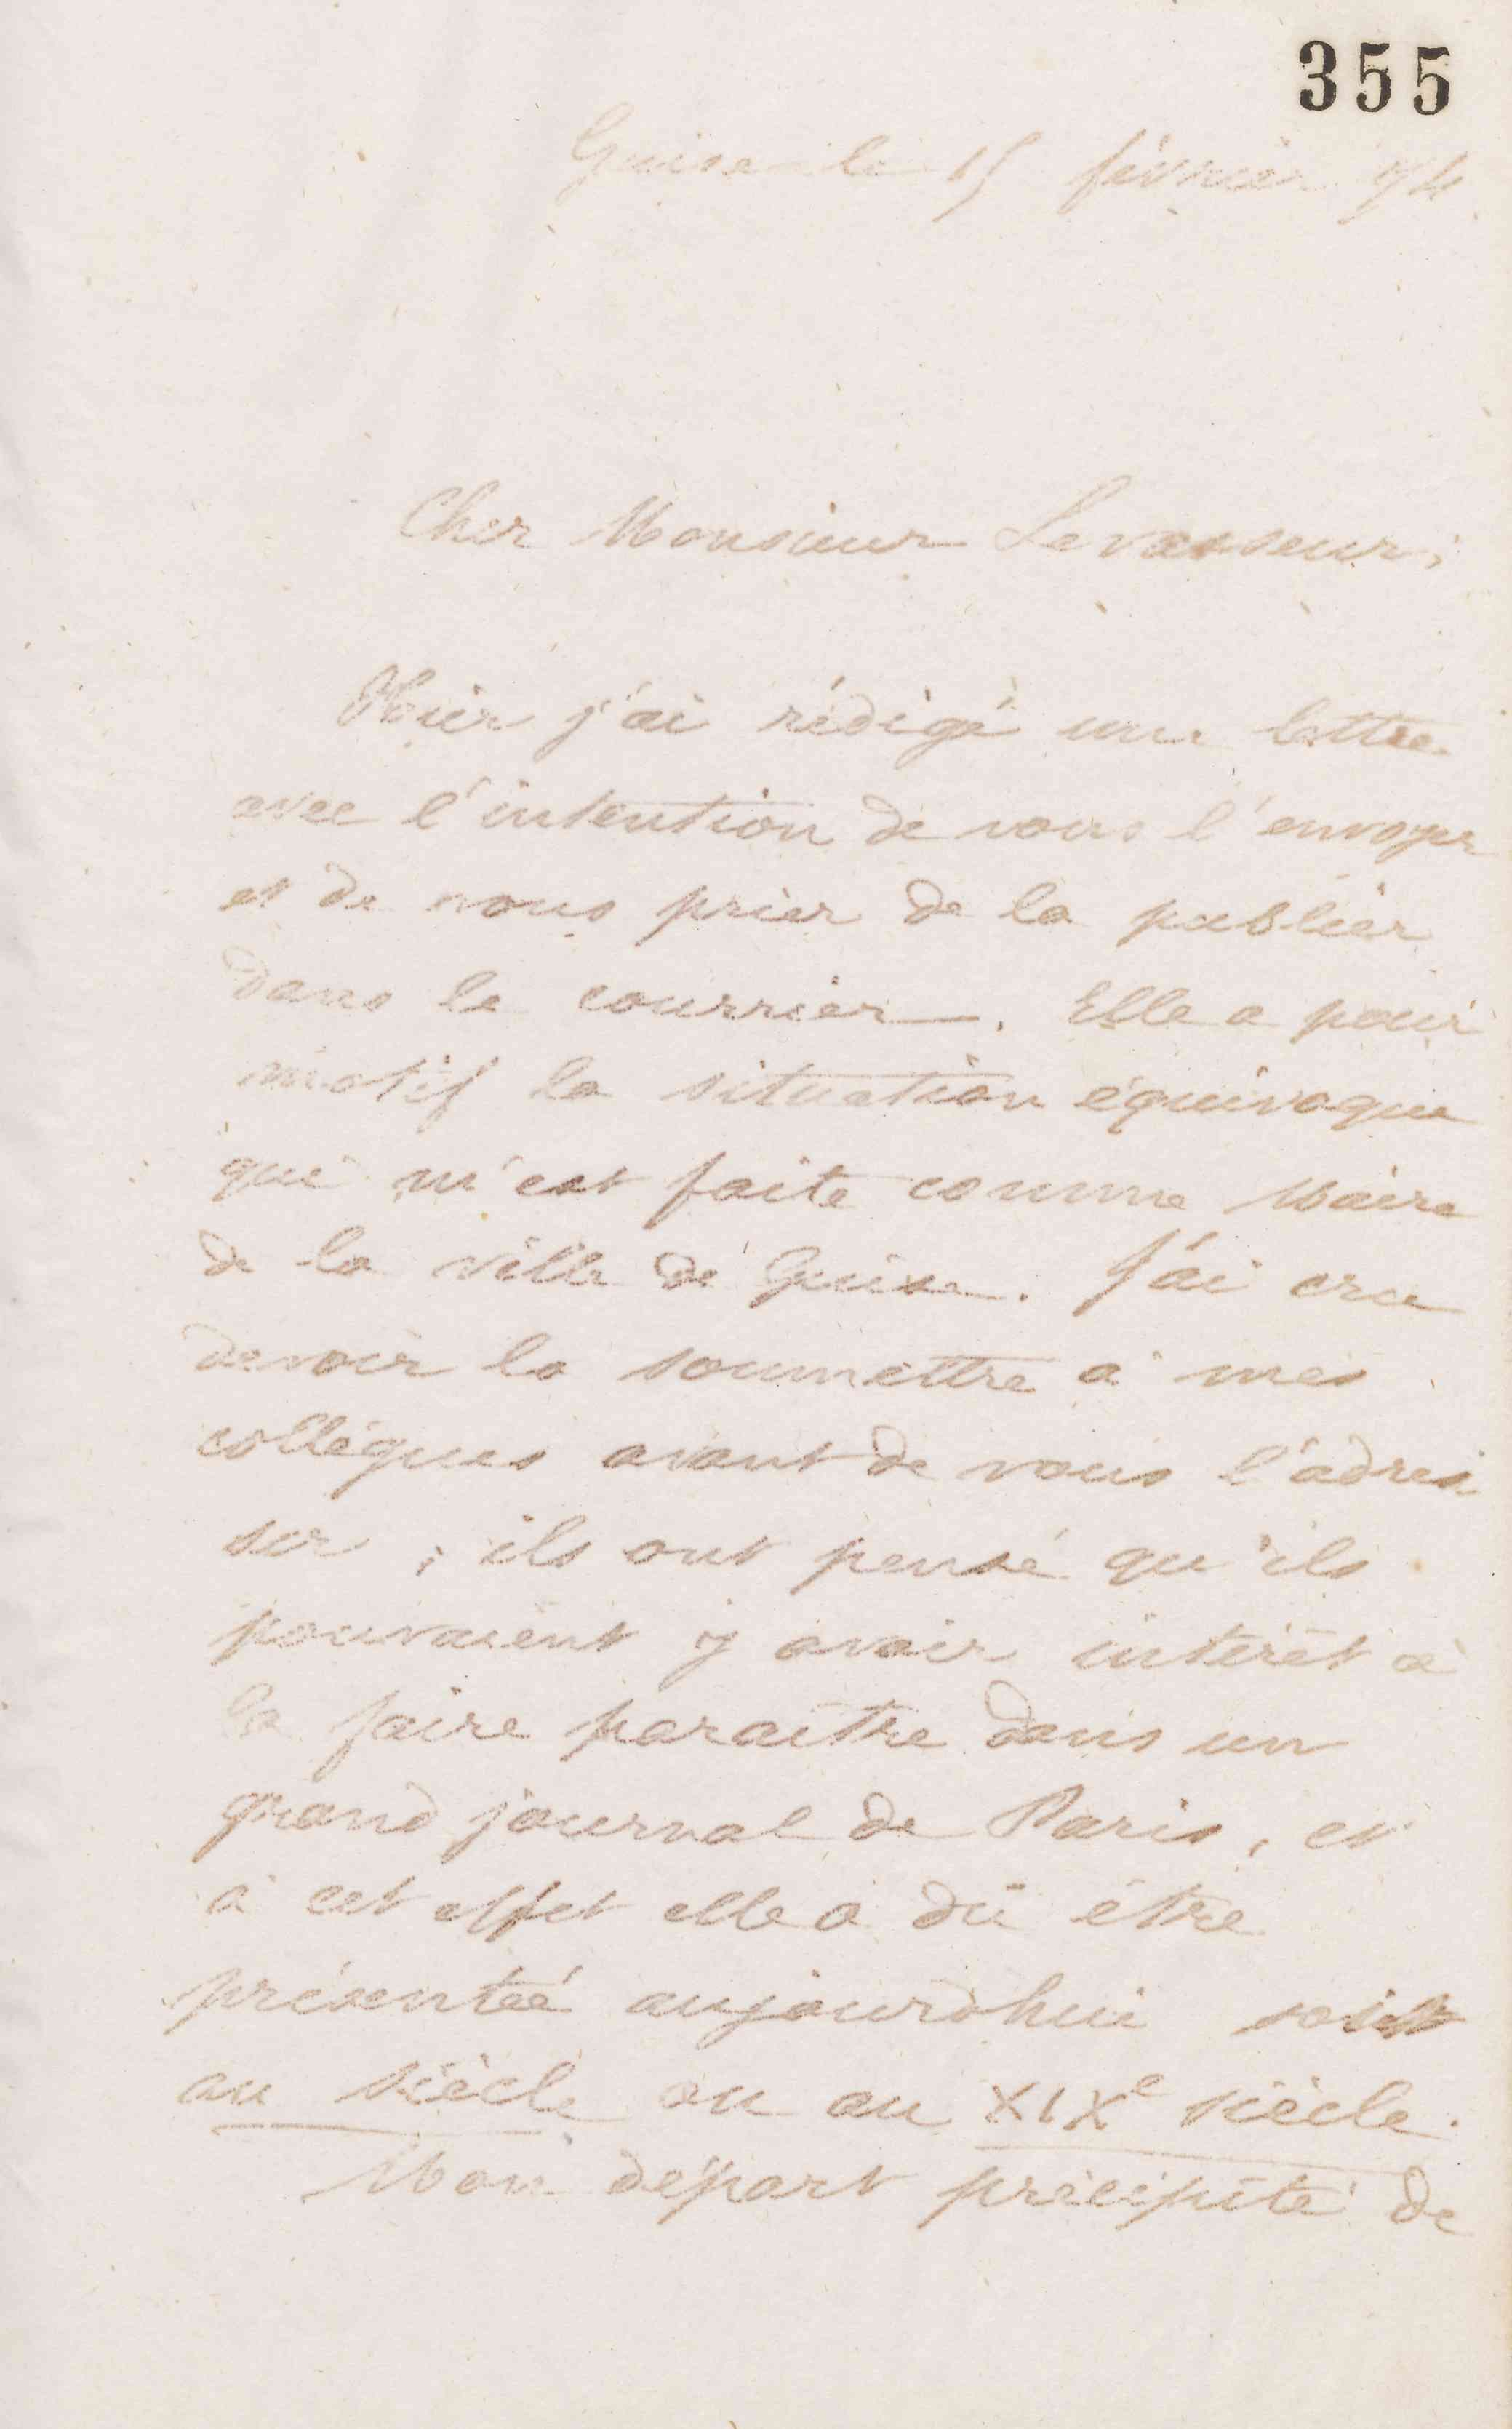 355
Guise le 15 février 74
Cher Monsieur Levasseur,
Hier j'ai rédigé une lettre
avec l'intention de vous l'envoyer
et de vous prier de la publier
dans le courrier. Elle a pour
motif la situation équivoque
qui m'est faite comme Maire
de la ville de Guise. J'ai cru
devoir la soumettre à mes
collègues avant de vous l'adres
ser ; ils ont pensé qu'ils
pouvaient y avoir intérêt à
la faire paraître dans un
grand journal de Paris, et
à cet effet elle a dû être
présentée aujourdhui soit
au siècle ou au XIXe siècle.
Mon départ précipité de